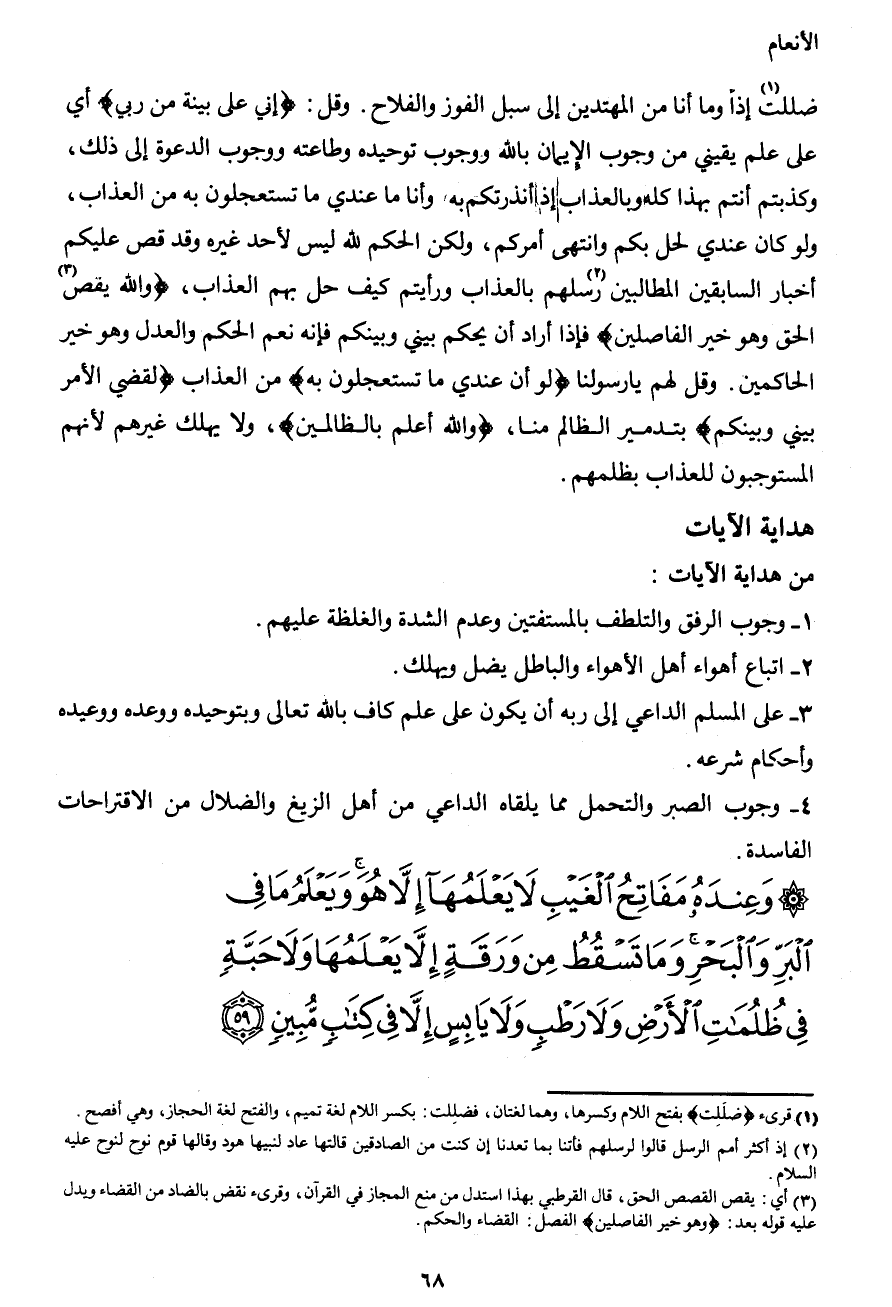 الأنعام
ضللت(١) إذاً وما أنا من المهتدين إلى سبل الفوز والفلاح. وقل: ﴿إني على بينة من ربي﴾ أي
على علم يقيني من وجوب الإيمان بالله ووجوب توحيده وطاعته ووجوب الدعوة إلى ذلك،
وكذبتم أنتم بهذا كله وبالعذاب إذا أنذرتكم به، وأنا ما عندي ما تستعجلون به من العذاب،
ولو كان عندي لحل بكم وانتهى أمركم، ولكن الحكم لله ليس لأحد غيره وقد قص عليكم
أخبار السابقين المطالبين(٢) رسلهم بالعذاب ورأيتم كيف حل بهم العذاب، ﴿والله يقص(٣)
الحق وهو خير الفاصلين﴾ فإذا أراد أن يحكم بيني وبينكم فإنه نعم الحكم والعدل وهو خير
الحاكمين. وقل لهم يارسولنا ﴿لو أن عندي ما تستعجلون به﴾ من العذاب ﴿لقضي الأمر
بيني وبينكم﴾ بتدمير الظالم منا، ﴿والله أعلم بالظالمين﴾، ولا يهلك غيرهم لأنهم
المستوجبون للعذاب بظلمهم.
هداية الآيات
من هداية الآيات:
١ـ وجوب الرفق والتلطف بالمستفتين وعدم الشدة والغلظة عليهم.
٢ـ اتباع أهواء أهل الأهواء والباطل يضل ويهلك.
٣ـ على المسلم الداعي إلى ربه أن يكون على علم كاف بالله تعالى وبتوحيده ووعده ووعيده
وأحكام شرعه.
٤ـ وجوب الصبر والتحمل مما يلقاه الداعي من أهل الزيغ والضلال من الاقتراحات
الفاسدة.
۞ وَعِندَهُۥ مَفَاتِحُ ٱلْغَيْبِ لَا يَعْلَمُهَآ إِلَّا هُوَۚ وَيَعْلَمُ مَا فِى
ٱلْبَرِّ وَٱلْبَحْرِۚ وَمَا تَسْقُطُ مِن وَرَقَةٍ إِلَّا يَعْلَمُهَا وَلَا حَبَّةٍ
فِى ظُلُمَٰتِ ٱلْأَرْضِ وَلَا رَطْبٍ وَلَا يَابِسٍ إِلَّا فِى كِتَٰبٍ مُّبِينٍ ٥٩
(١) قرىء ﴿ضلَلِت﴾ بفتح اللام وكسرها، وهما لغتان، فضلِلت: بكسر اللام لغة تميم، والفتح لغة الحجاز، وهي أفصح.
(٢) إذ أكثر أمم الرسل قالوا لرسلهم فأتنا بما تعدنا إن كنت من الصادقين قالتها عاد لنبيها هود وقالها قوم نوح لنوح عليه
السلام.
(٣) أي: يقص القصص الحق، قال القرطبي بهذا استدل من منع المجاز في القرآن، وقرىء نقض بالضاد من القضاء ويدل
عليه قوله بعد: ﴿وهو خير الفاصلين﴾ الفصل: القضاء والحكم.
٦٨